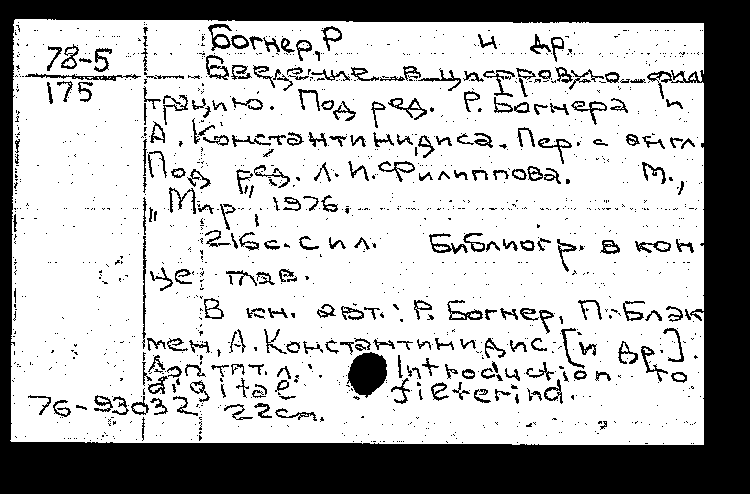 Богнер, Р и др.
78-5
Введение в цифровую филь
175
трацию. Под ред. Р. Богнера и
А. Константинидиса. Пер. с англ.
Под ред. Л. И. Филиппова. М.,
"Мир", 1976.
216с. с ил. Библиогр. в кон-
це глав.
В кн. авт.: Р. Богнер, П. Блэк
мен, А. Константинидис [и др.].
Доп. тит. л.: Introduction to
digitae fieterind.
76-93032 22см.